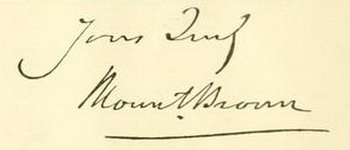 Yours Truly
Mount Brown